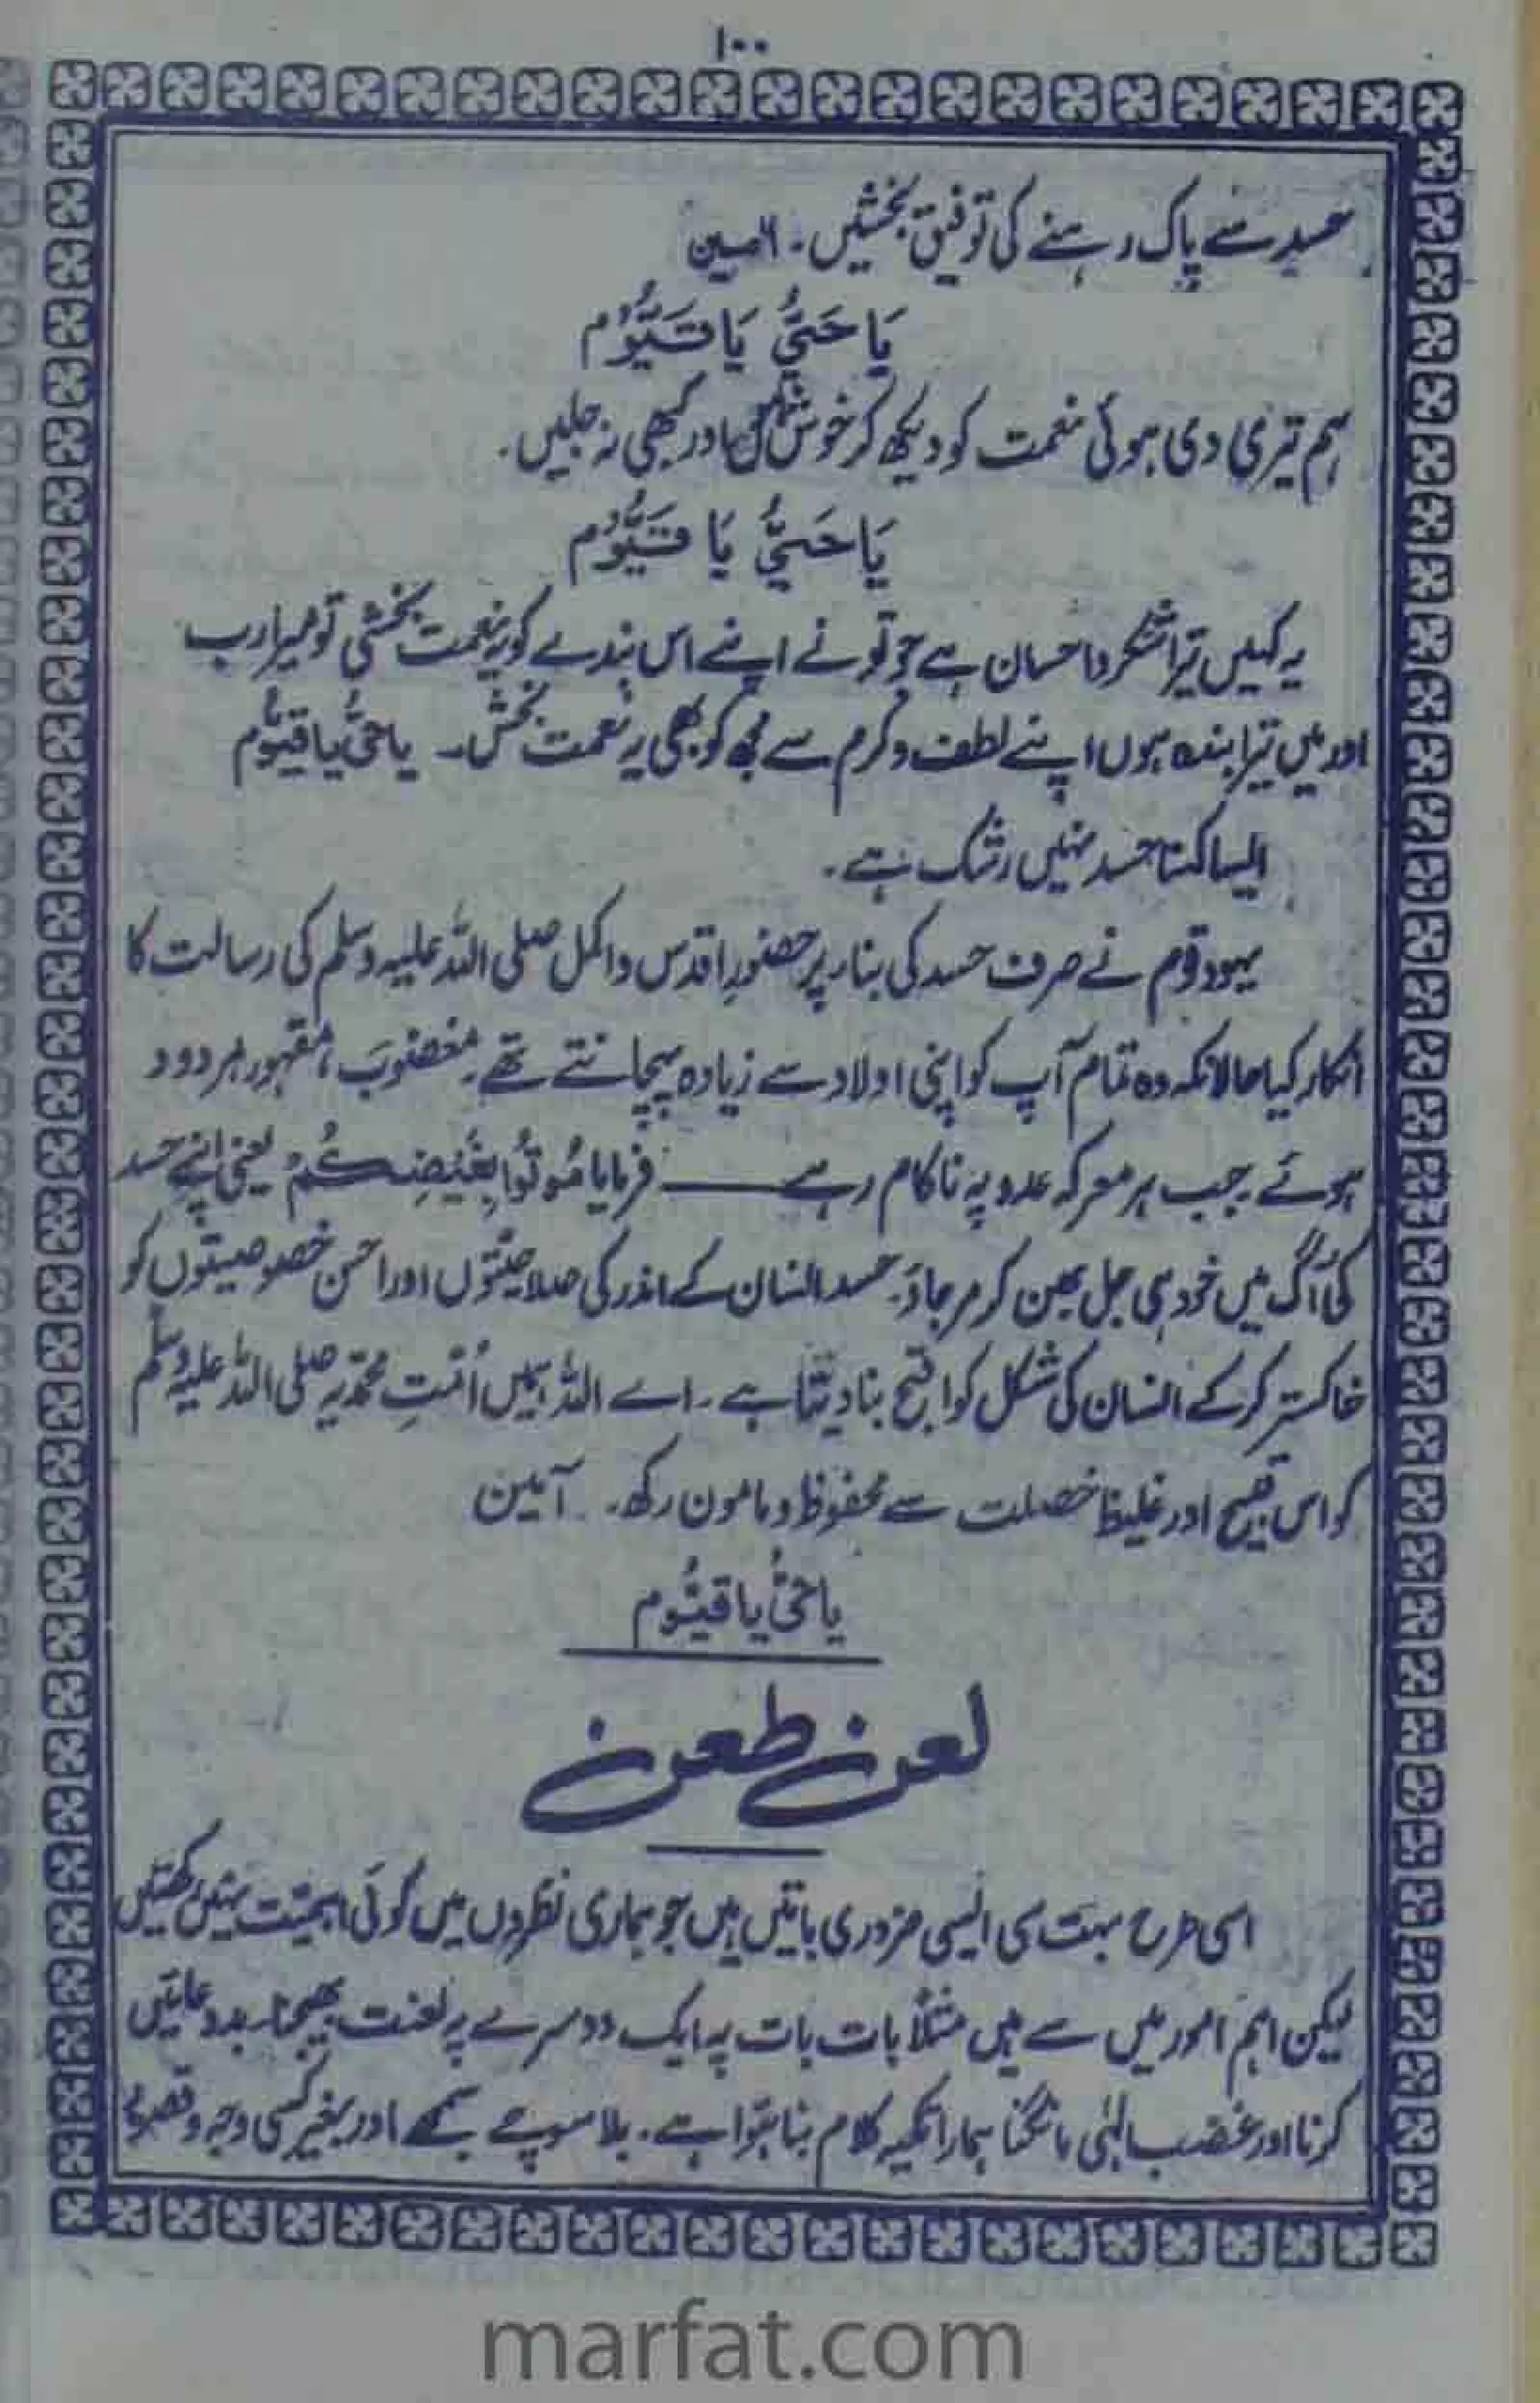 ۱۰۰
حسد سے پاک رہنے کی توفیق بخشیں۔ آمین
یَا حَیُّ یَا قَیُّوْمُ
ہم تیری دی ہوئی نعمت کو دیکھ کر خوش ہوں اور کبھی نہ جلیں۔
یَا حَیُّ یَا قَیُّوْمُ
یہ کہیں تیرا شکر و احسان ہے جو تو نے اپنے اس بندے کو یہ نعمت بخشی تو میرا رب
اور میں تیرا بندہ ہوں اپنے لطف و کرم سے مجھ کو بھی یہ نعمت بخش۔ یا حیُّ یا قیّومُ
ایسا کہنا حسد نہیں رشک ہے۔
یہود قوم نے صرف حسد کی بناء پر حضورِ اقدس و اکمل صلی اللہ علیہ وسلم کی رسالت کا
انکار کیا حالانکہ وہ تمام آپ کو اپنی اولاد سے زیادہ پہچانتے تھے۔ مغضوب، مقہور مردود
ہوئے۔ جب ہر معرکہ عدو پہ ناکام رہے ——— فرمایا مُوْتُوْا بِغَیْضِکُمْ یعنی اپنے حسد
کی آگ میں خود ہی جل بھن کر مر جاؤ۔ حسد انسان کے اندر کی صلاحیتوں اور احسن خصوصیتوں کو
خاکستر کر کے انسان کی شکل کو اقبح بنا دیتا ہے۔ اے اللہ ہمیں اُمّتِ محمّدیہ صلی اللہ علیہ وسلم
کو اس قبیح اور غلیظ خصلت سے محفوظ و مامون رکھ۔ آمین
یا حیُّ یا قیُّوم
لعن طعن
اسی طرح بہت سی ایسی ضروری باتیں ہیں جو ہماری نظروں میں کوئی اہمیّت نہیں رکھتیں
لیکن اہم امور میں سے ہیں مثلاً بات بات پہ ایک دوسرے پر لعنت بھیجنا۔ بد دعائیں
کرنا اور غضب الٰہی مانگنا ہمارا تکیہ کلام بنا ہوا ہے۔ بلا سوچے سمجھے اور بغیر کسی وجہ و قصور کے
marfat.com